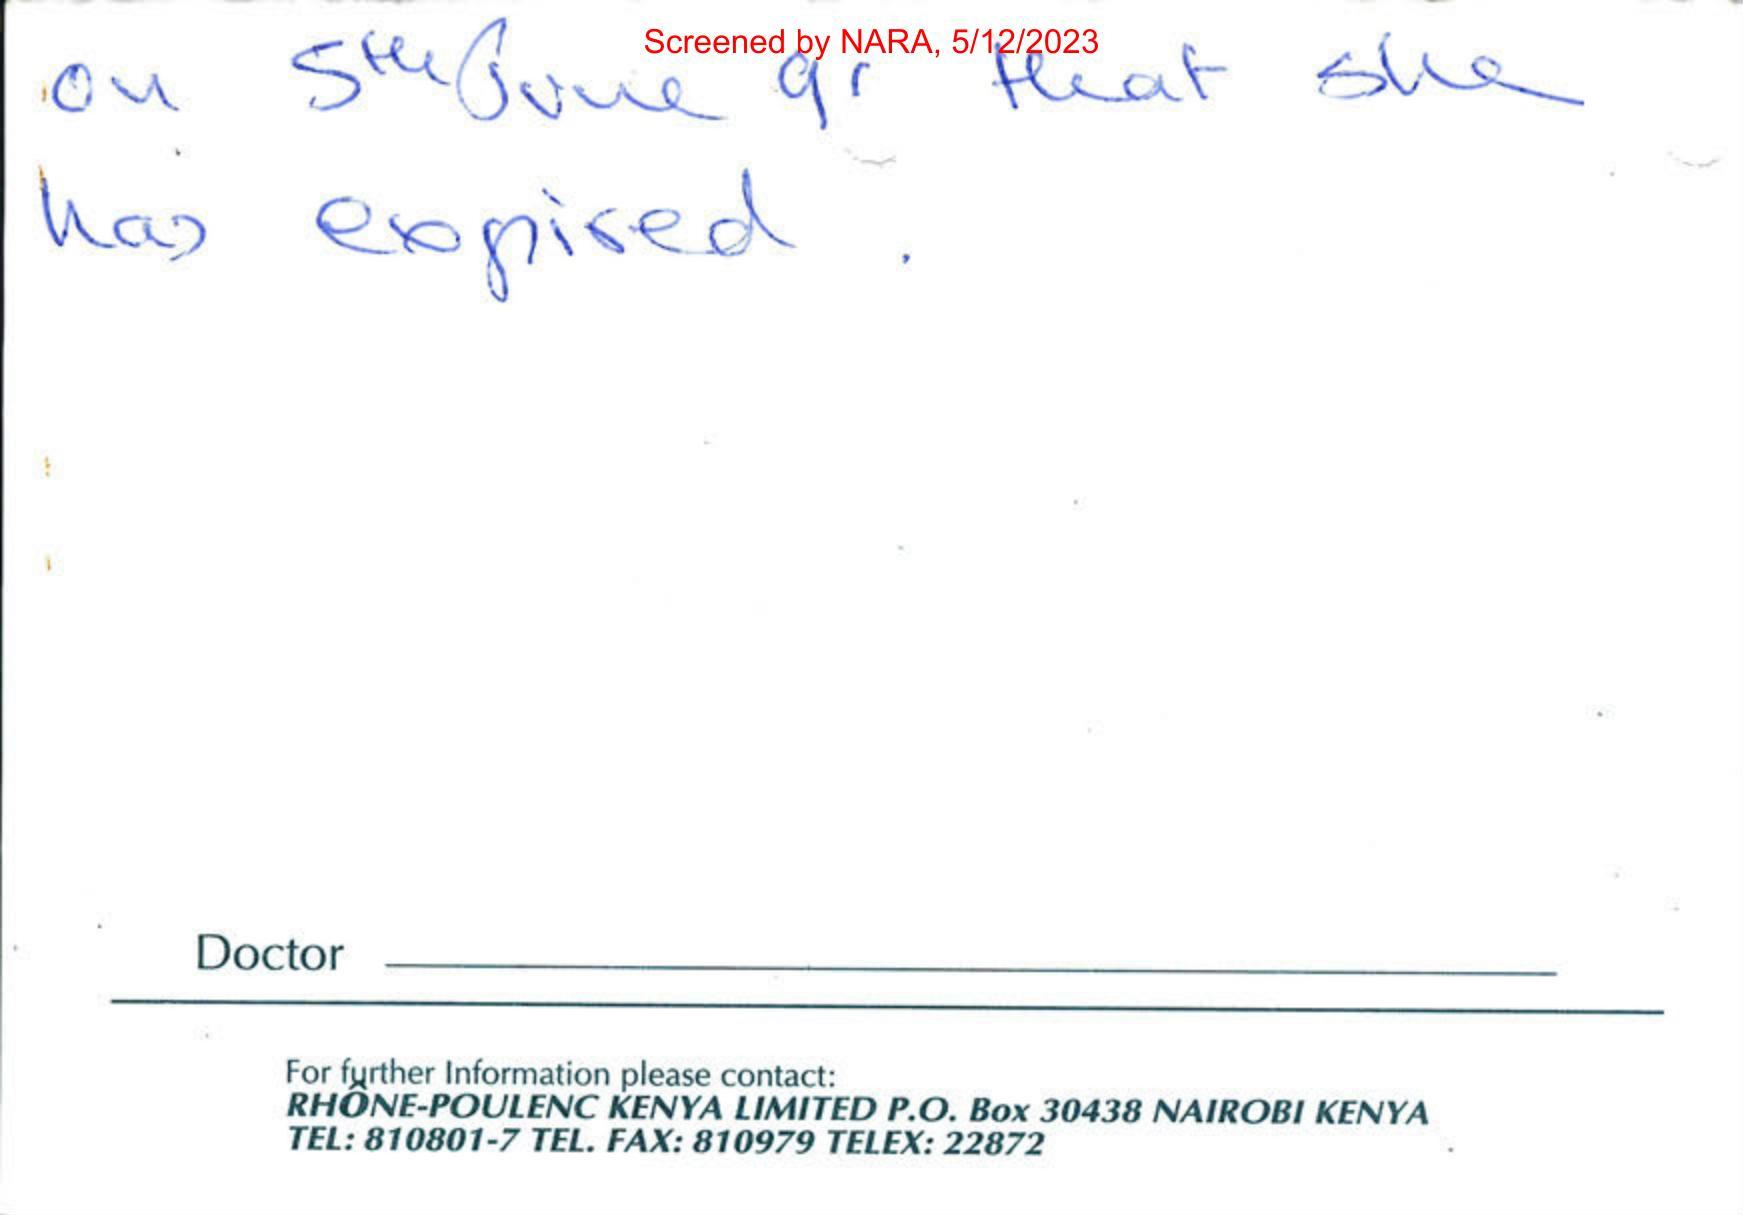 Screened by NARA, 5/12/2023
on 5th June 91 that she
has expired.
Doctor
For further Information please contact:
RHÔNE-POULENC KENYA LIMITED P.O. Box 30438 NAIROBI KENYA
TEL: 810801-7 TEL. FAX: 810979 TELEX: 22872